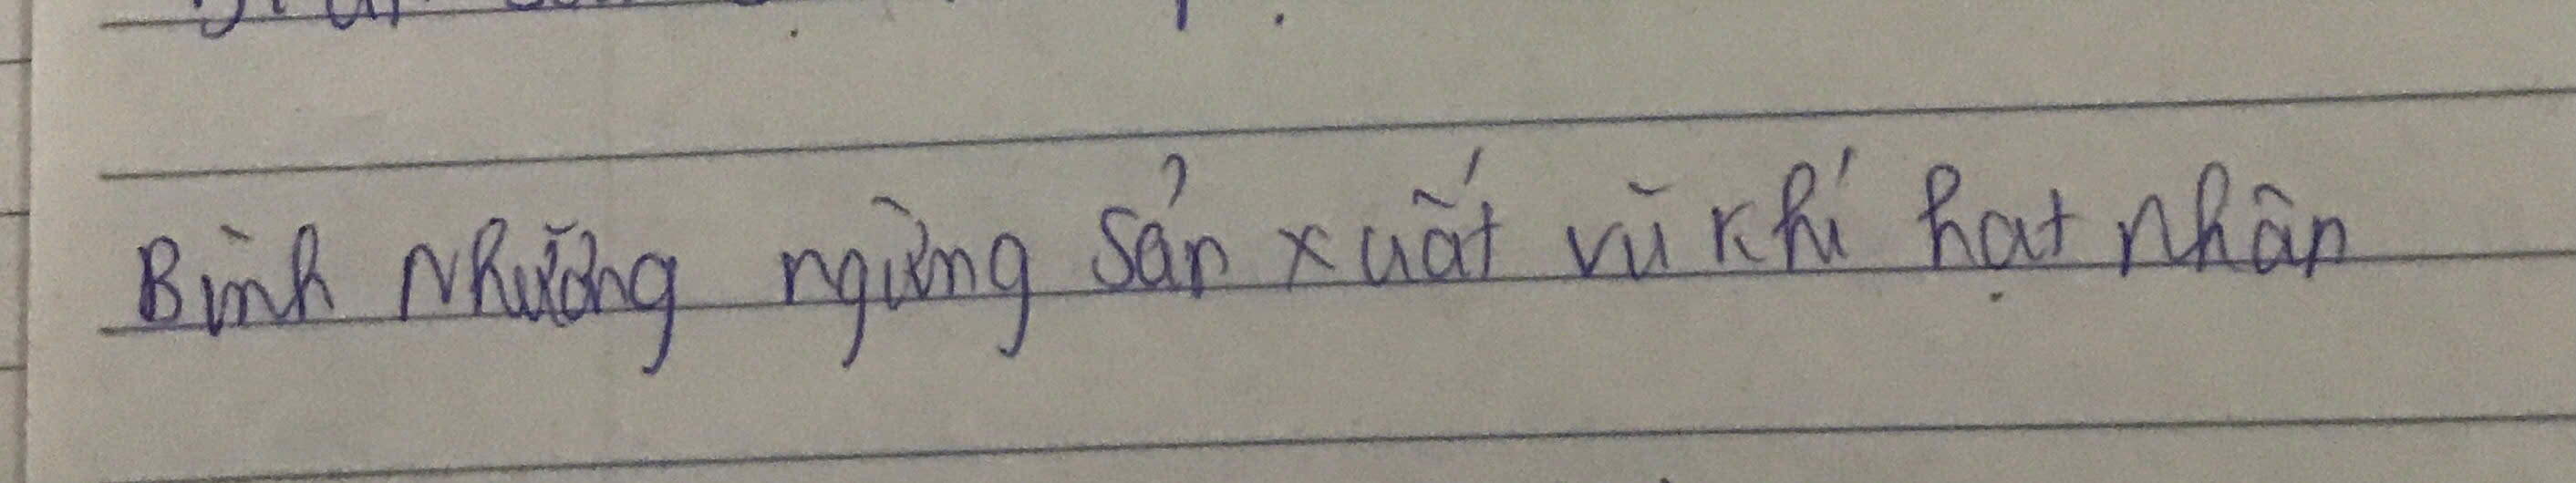 Bình Nhưỡng ngừng sản xuất vũ khí hạt nhân